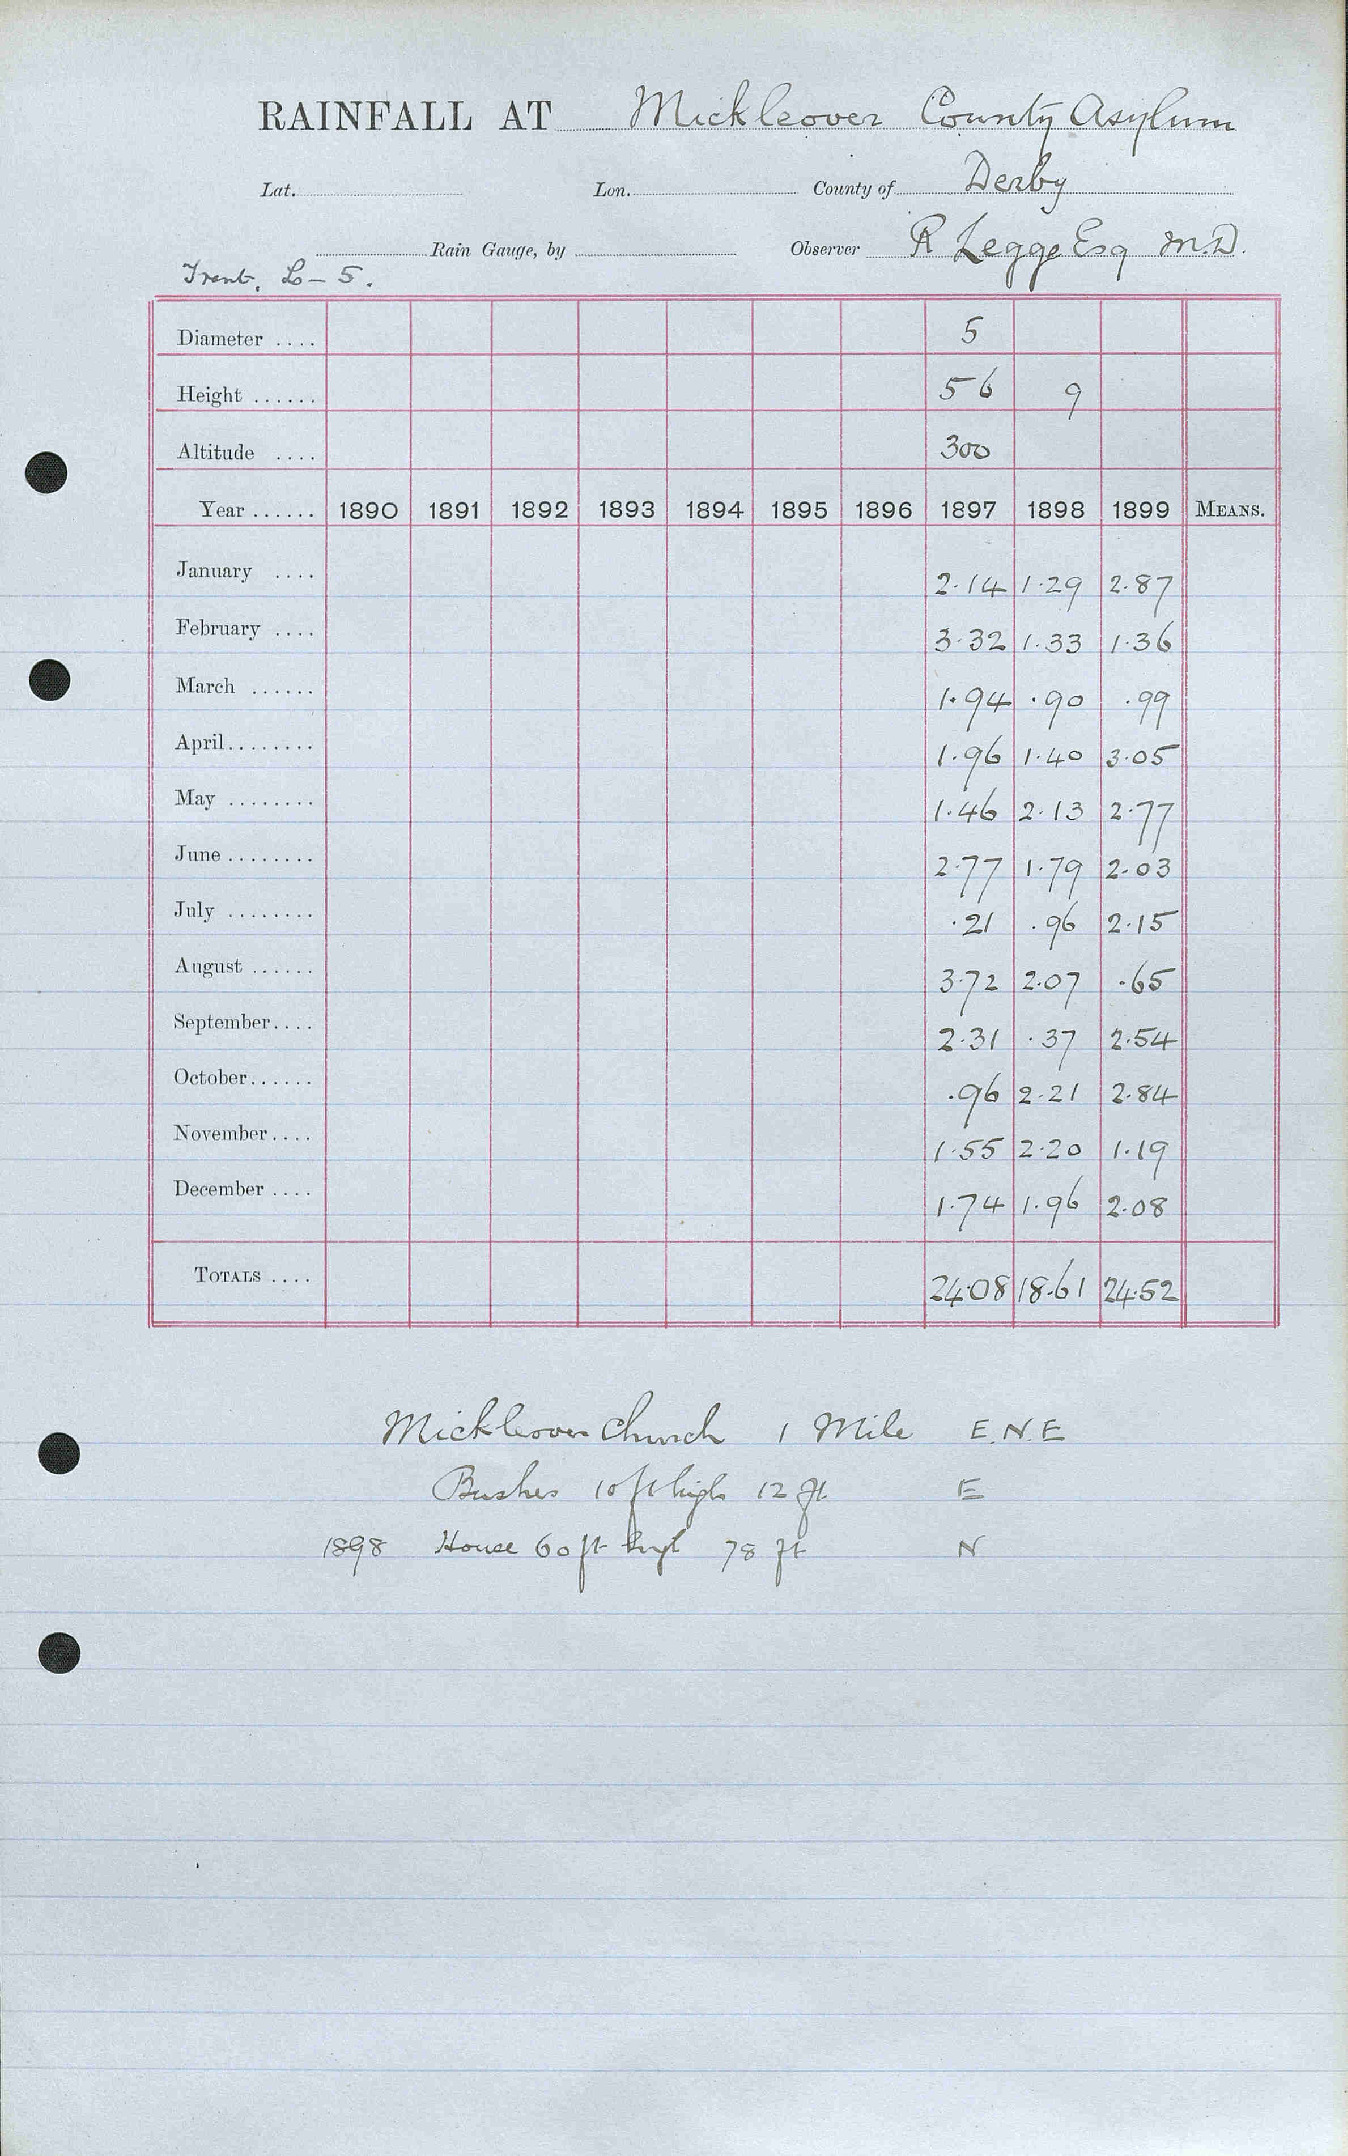 RAINFALL AT Mickleover County Asylum
Lat. Lon. County of Derby
Rain Gauge, by Observer R Legge Esq M.D.
Trent. L – 5.
Diameter .... 5
Height ...... 5 6 9
Altitude .... 300
Year ...... 1890 1891 1892 1893 1894 1895 1896 1897 1898 1899 MEANS.
January .... 2.14 1.29 2.87
February .... 3.32 1.33 1.36
March ...... 1.94 .90 .99
April........ 1.96 1.40 3.05
May ........ 1.46 2.13 2.77
June ........ 2.77 1.79 2.03
July ........ .21 .96 2.15
August ...... 3.72 2.07 .65
September.... 2.31 .37 2.54
October...... .96 2.21 2.84
November.... 1.55 2.20 1.19
December .... 1.74 1.96 2.08
TOTALS .... 24.08 18.61 24.52
Mickleover Church 1 Mile E.N.E
Bushes 10 ft high 12 ft E
1898 House 60 ft high 78 ft N